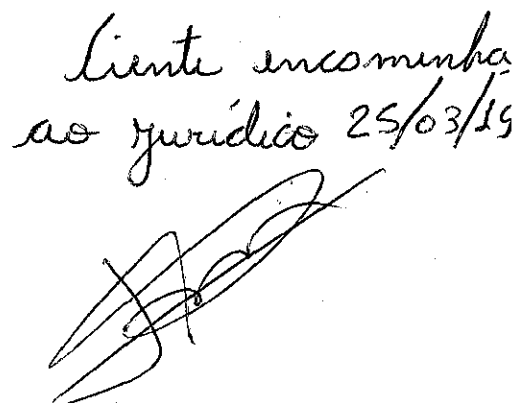 Ciente encaminha
ao jurídico 25/03/19